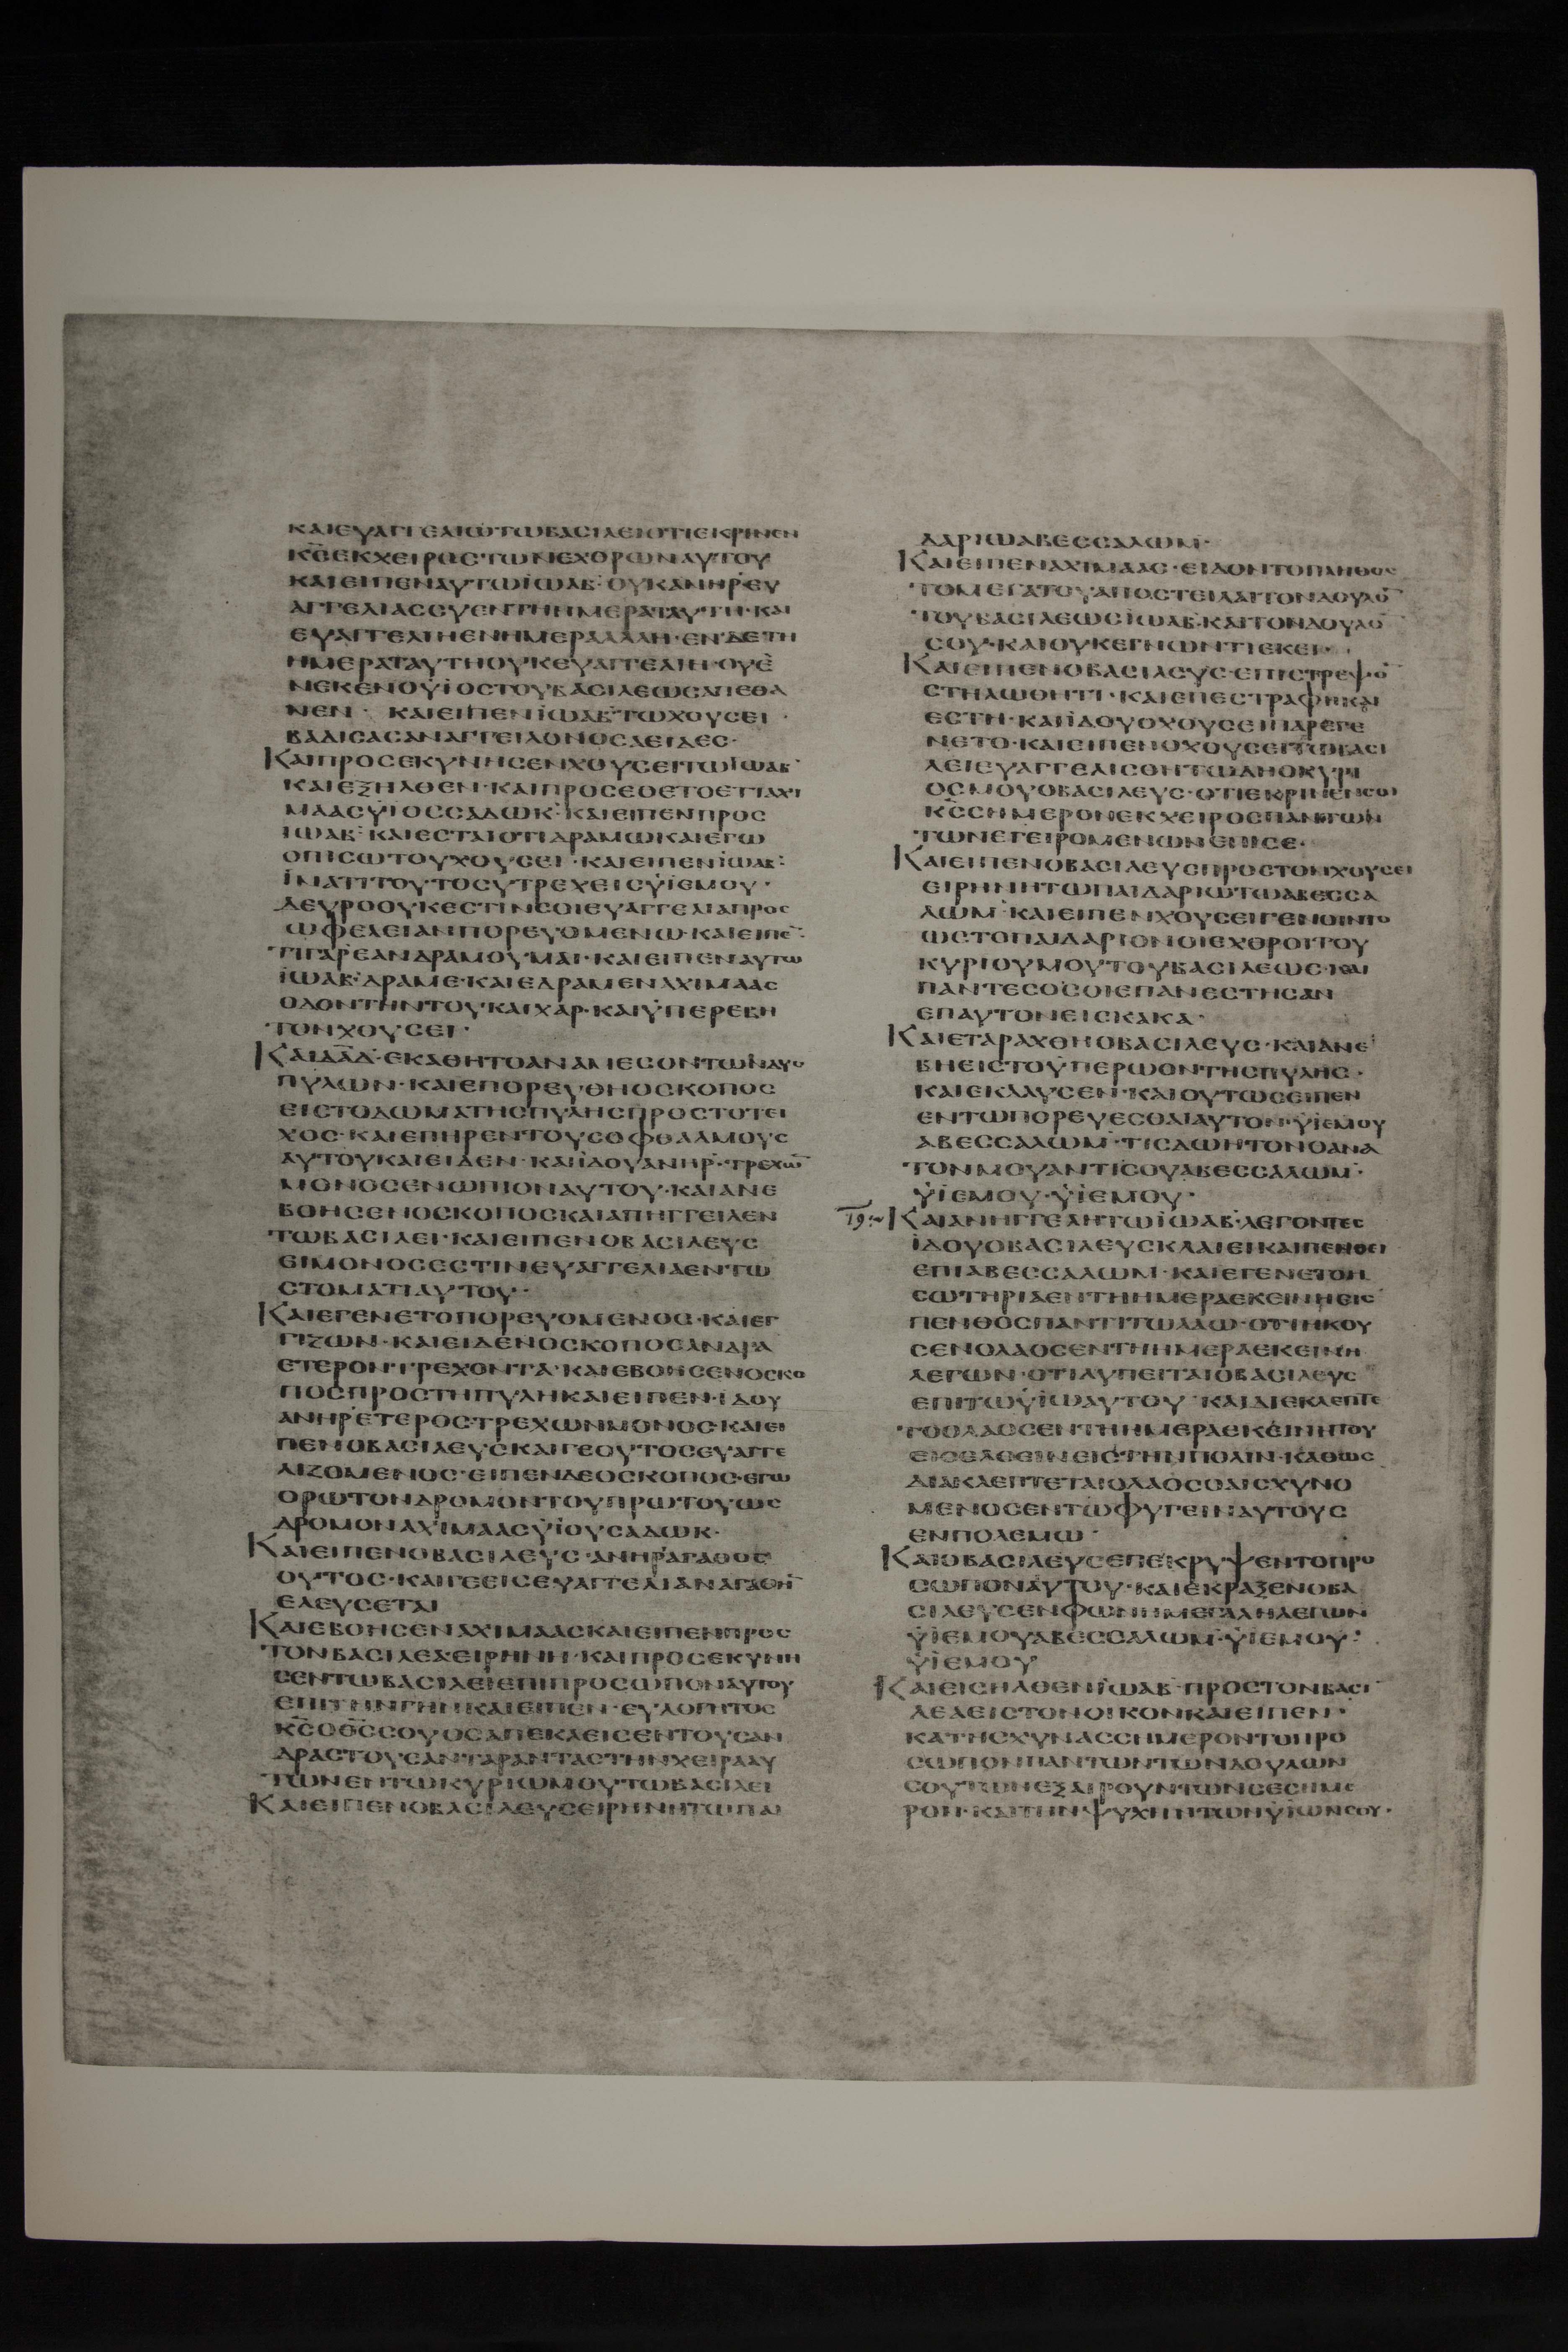 ΚΑΙΕΥΑΓΓΕΛΙΩΤΩΒΑϹΙΛΕΙΟΤΙΕΚΡΙΝΕΝ
Κ̅Ϲ̅ΕΚΧΕΙΡΟϹ·ΤΩΝΕΧΘΡΩΝΑΥΤΟΥ
ΚΑΙΕΙΠΕΝΑΥΤΩΪΩΑΒ·ΟΥΚΑΝΗΡΕΥ
ΑΓΓΕΛΙΑϹϹΥΕΝΤΗΗΜΕΡΑΤΑΥΤΗ·ΚΑΙ
ΕΥΑΓΓΕΛΙΗΕΝΗΜΕΡΑΑΛΛΗ·ΕΝΔΕΤΗ
ΗΜΕΡΑΤΑΥΤΗΟΥΚΕΥΑΓΓΕΛΙΗ·ΟΥΕ
ΝΕΚΕΝΟΫΪΟϹΤΟΥΒΑϹΙΛΕΩϹΑΠΕΘΑ
ΝΕΝ· ΚΑΙΕΙΠΕΝΪΩΑΒ·ΤΩΧΟΥϹΕΙ·
ΒΑΔΙϹΑϹΑΝΑΓΓΕΙΛΟΝΟϹΑΕΙΔΕϹ·
ΚΑΙΠΡΟϹΕΚΥΝΗϹΕΝΧΟΥϹΕΙΤΩΪΩΑΒ·
ΚΑΙΕΞΗΛΘΕΝ·ΚΑΙΠΡΟϹΕΘΕΤΟΕΤΙΑΧΙ
ΜΑΑϹΫΙΟϹϹΑΔΩΚ·ΚΑΙΕΙΠΕΝΠΡΟϹ
ΪΩΑΒ·ΚΑΙΕϹΤΑΙΟΤΙΔΡΑΜΩΚΑΙΕΓΩ
ΟΠΙϹΩΤΟΥΧΟΥϹΕΙ·ΚΑΙΕΙΠΕΝΪΩΑΒ·
ΪΝΑΤΙΤΟΥΤΟϹΥΤΡΕΧΕΙϹΫΪΕΜΟΥ·
ΔΕΥΡΟΟΥΚΕϹΤΙΝϹΟΙΕΥΑΓΓΕΛΙΑΠΡΟϹ
ΩΦΕΛΕΙΑΝΠΟΡΕΥΟΜΕΝΩ·ΚΑΙΕΙΠΕ̅·
ΤΙΓΑΡΕΑΝΔΡΑΜΟΥΜΑΙ·ΚΑΙΕΙΠΕΝΑΥΤΩ
ΪΩΑΒ·ΔΡΑΜΕ·ΚΑΙΕΔΡΑΜΕΝΑΧΙΜΑΑϹ
ΟΔΟΝΤΗΝΤΟΥΚΑΙΧΑΡ·ΚΑΙΫΠΕΡΕΒΗ
ΤΟΝΧΟΥϹΕΙ·
ΚΑΙΔ̅Α̅Δ̅·ΕΚΑΘΗΤΟΑΝΑΜΕϹΟΝΤΩΝΔΥΟ
ΠΥΛΩΝ·ΚΑΙΕΠΟΡΕΥΘΗΟϹΚΟΠΟϹ
ΕΙϹΤΟΔΩΜΑΤΗϹΠΥΛΗϹΠΡΟϹΤΟΤΕΙ
ΧΟϹ·ΚΑΙΕΠΗΡΕΝΤΟΥϹΟΦΘΑΛΜΟΥϹ
ΑΥΤΟΥΚΑΙΕΙΔΕΝ·ΚΑΙΪΔΟΥΑΝΗΡ·ΤΡΕΧΩ̅
ΜΟΝΟϹΕΝΩΠΙΟΝΑΥΤΟΥ·ΚΑΙΑΝΕ
ΒΟΗϹΕΝΟϹΚΟΠΟϹΚΑΙΑΠΗΓΓΕΙΛΕΝ
ΤΩΒΑϹΙΛΕΙ·ΚΑΙΕΙΠΕΝΟΒΑϹΙΛΕΥϹ
ΕΙΜΟΝΟϹΕϹΤΙΝΕΥΑΓΓΕΛΙΑΕΝΤΩ
ϹΤΟΜΑΤΙΑΥΤΟΥ·
ΚΑΙΕΓΕΝΕΤΟΠΟΡΕΥΟΜΕΝΟϹ·ΚΑΙΕΓ
ΓΙΖΩΝ·ΚΑΙΕΙΔΕΝΟϹΚΟΠΟϹΑΝΔΡΑ
ΕΤΕΡΟΝΤΡΕΧΟΝΤΑ·ΚΑΙΕΒΟΗϹΕΝΟϹΚΟ
ΠΟϹΠΡΟϹΤΗΠΥΛΗΚΑΙΕΙΠΕΝ·ΪΔΟΥ
ΑΝΗΡΕΤΕΡΟϹΤΡΕΧΩΝΜΟΝΟϹ·ΚΑΙΕΙ
ΠΕΝΟΒΑϹΙΛΕΥϹΚΑΙΓΕΟΥΤΟϹΕΥΑΓΓΕ
ΛΙΖΟΜΕΝΟϹ·ΕΙΠΕΝΔΕΟϹΚΟΠΟϹ·ΕΓΩ
ΟΡΩΤΟΝΔΡΟΜΟΝΤΟΥΠΡΩΤΟΥΩϹ
ΔΡΟΜΟΝΑΧΙΜΑΑϹΫΪΟΥϹΑΔΩΚ·
ΚΑΙΕΙΠΕΝΟΒΑϹΙΛΕΥϹ·ΑΝΗΡΑΓΑΘΟϹ
ΟΥΤΟϹ·ΚΑΙΓΕΕΙϹΕΥΑΓΓΕΛΙΑΝΑΓΑΘΗ̅
ΕΛΕΥϹΕΤΑΙ
ΚΑΙΕΒΟΗϹΕΝΑΧΙΜΑΑϹΚΑΙΕΙΠΕΝΠΡΟϹ
ΤΟΝΒΑϹΙΛΕΑΕΙΡΗΝΗ·ΚΑΙΠΡΟϹΕΚΥΝΗ
ϹΕΝΤΩΒΑϹΙΛΕΙΕΠΙΠΡΟϹΩΠΟΝΑΥΤΟΥ
ΕΠΙΤΗΝΓΗΝΚΑΙΕΙΠΕΝ·ΕΥΛΟΓΗΤΟϹ
Κ̅Ϲ̅ΟΘ̅Ϲ̅ϹΟΥΟϹΑΠΕΚΛΕΙϹΕΝΤΟΥϹΑΝ
ΔΡΑϹΤΟΥϹΑΝΤΑΡΑΝΤΑϹΤΗΝΧΕΙΡΑΑΥ
ΤΩΝΕΝΤΩΚΥΡΙΩΜΟΥΤΩΒΑϹΙΛΕΙ
ΚΑΙΕΙΠΕΝΟΒΑϹΙΛΕΥϹΕΙΡΗΝΗΤΩΠΑΙ
ΔΑΡΙΩΑΒΕϹϹΑΛΩΜ·
ΚΑΙΕΙΠΕΝΑΧΙΜΑΑϹ·ΕΙΔΟΝΤΟΠΛΗΘΟϹ
ΤΟΜΕΓΑΤΟΥΑΠΟϹΤΕΙΛΑΙΤΟΝΔΟΥΛΟ̅
ΤΟΥΒΑϹΙΛΕΩϹΪΩΑΒ·ΚΑΙΤΟΝΔΟΥΛΟ̅
ϹΟΥ·ΚΑΙΟΥΚΕΓΝΩΝΤΙΕΚΕΙ·
ΚΑΙΕΙΠΕΝΟΒΑϹΙΛΕΥϹ·ΕΠΙϹΤΡΕΨΟ̅
ϹΤΗΛΩΘΗΤΙ·ΚΑΙΕΠΕϹΤΡΑΦΗΚΑΙ
ΕϹΤΗ·ΚΑΙΪΔΟΥΟΧΟΥϹΕΙΠΑΡΕΓΕ
ΝΕΤΟ·ΚΑΙΕΙΠΕΝΟΧΟΥϹΕΙΤΩΒΑϹΙ
ΛΕΙΕΥΑΓΓΕΛΙϹΘΗΤΩΔΗΟΚΥΡΙ
ΟϹΜΟΥΟΒΑϹΙΛΕΥϹ·ΟΤΙΕΚΡΙΝΕΝϹΟΙ
Κ̅Ϲ̅ϹΗΜΕΡΟΝΕΚΧΕΙΡΟϹΠΑΝΤΩΝ
ΤΩΝΕΓΕΙΡΟΜΕΝΩΝΕΠΙϹΕ·
ΚΑΙΕΙΠΕΝΟΒΑϹΙΛΕΥϹΠΡΟϹΤΟΝΧΟΥϹΕΙ
ΕΙΡΗΝΗΤΩΠΑΙΔΑΡΙΩΤΩΑΒΕϹϹΑ
ΛΩΜ·ΚΑΙΕΙΠΕΝΧΟΥϹΕΙΓΕΝΟΙΝΤΟ
ΩϹΤΟΠΑΙΔΑΡΙΟΝΟΙΕΧΘΡΟΙΤΟΥ
ΚΥΡΙΟΥΜΟΥΤΟΥΒΑϹΙΛΕΩϹ·ΚΑΙ
ΠΑΝΤΕϹΟϹΟΙΕΠΑΝΕϹΤΗϹΑΝ
ΕΠΑΥΤΟΝΕΙϹΚΑΚΑ·
ΚΑΙΕΤΑΡΑΧΘΗΟΒΑϹΙΛΕΥϹ·ΚΑΙΑΝΕ
ΒΗΕΙϹΤΟΫΠΕΡΩΟΝΤΗϹΠΥΛΗϹ·
ΚΑΙΕΚΛΑΥϹΕΝ·ΚΑΙΟΥΤΩϹΕΙΠΕΝ
ΕΝΤΩΠΟΡΕΥΕϹΘΑΙΑΥΤΟΝ·ΫΪΕΜΟΥ
ΑΒΕϹϹΑΛΩΜ·ΤΙϹΔΩΗΤΟΝΘΑΝΑ
ΤΟΝΜΟΥΑΝΤΙϹΟΥΑΒΕϹϹΑΛΩΜ·
ΫΪΕΜΟΥ·ΫΪΕΜΟΥ·
19 ΚΑΙΑΝΗΓΓΕΛΗΤΩΪΩΑΒ·ΛΕΓΟΝΤΕϹ
ΪΔΟΥΟΒΑϹΙΛΕΥϹΚΛΑΙΕΙΚΑΙΠΕΝΘΕΙ
ΕΠΙΑΒΕϹϹΑΛΩΜ·ΚΑΙΕΓΕΝΕΤΟΗ
ϹΩΤΗΡΙΑΕΝΤΗΗΜΕΡΑΕΚΕΙΝΗΕΙϹ
ΠΕΝΘΟϹΠΑΝΤΙΤΩΛΑΩ·ΟΤΙΗΚΟΥ
ϹΕΝΟΛΑΟϹΕΝΤΗΗΜΕΡΑΕΚΕΙΝΗ
ΛΕΓΩΝ·ΟΤΙΛΥΠΕΙΤΑΙΟΒΑϹΙΛΕΥϹ
ΕΠΙΤΩΫΪΩΑΥΤΟΥ·ΚΑΙΔΙΕΚΛΕΠΤΕ
ΤΟΟΛΑΟϹΕΝΤΗΗΜΕΡΑΕΚΕΙΝΗΤΟΥ
ΕΙϹΕΛΘΕΙΝΕΙϹΤΗΝΠΟΛΙΝ·ΚΑΘΩϹ
ΔΙΑΚΛΕΠΤΕΤΑΙΟΛΑΟϹΟΑΙϹΧΥΝΟ
ΜΕΝΟϹΕΝΤΩΦΥΓΕΙΝΑΥΤΟΥϹ
ΕΝΠΟΛΕΜΩ·
ΚΑΙΟΒΑϹΙΛΕΥϹΕΠΕΚΡΥΨΕΝΤΟΠΡΟ
ϹΩΠΟΝΑΥΤΟΥ·ΚΑΙΕΚΡΑΞΕΝΟΒΑ
ϹΙΛΕΥϹΕΝΦΩΝΗΜΕΓΑΛΗΛΕΓΩΝ
ΫΪΕΜΟΥΑΒΕϹϹΑΛΩΜ·ΫΪΕΜΟΥ·
ΫΪΕΜΟΥ
ΚΑΙΕΙϹΗΛΘΕΝΪΩΑΒ·ΠΡΟϹΤΟΝΒΑϹΙ
ΛΕΑΕΙϹΤΟΝΟΙΚΟΝΚΑΙΕΙΠΕΝ·
ΚΑΤΗϹΧΥΝΑϹϹΗΜΕΡΟΝΤΟΠΡΟ
ϹΩΠΟΝΠΑΝΤΩΝΤΩΝΔΟΥΛΩΝ
ϹΟΥΤΩΝΕΞΑΙΡΟΥΝΤΩΝϹΕϹΗΜΕ
ΡΟΝ·ΚΑΙΤΗΝΨΥΧΗΝΤΩΝΫΪΩΝϹΟΥ·